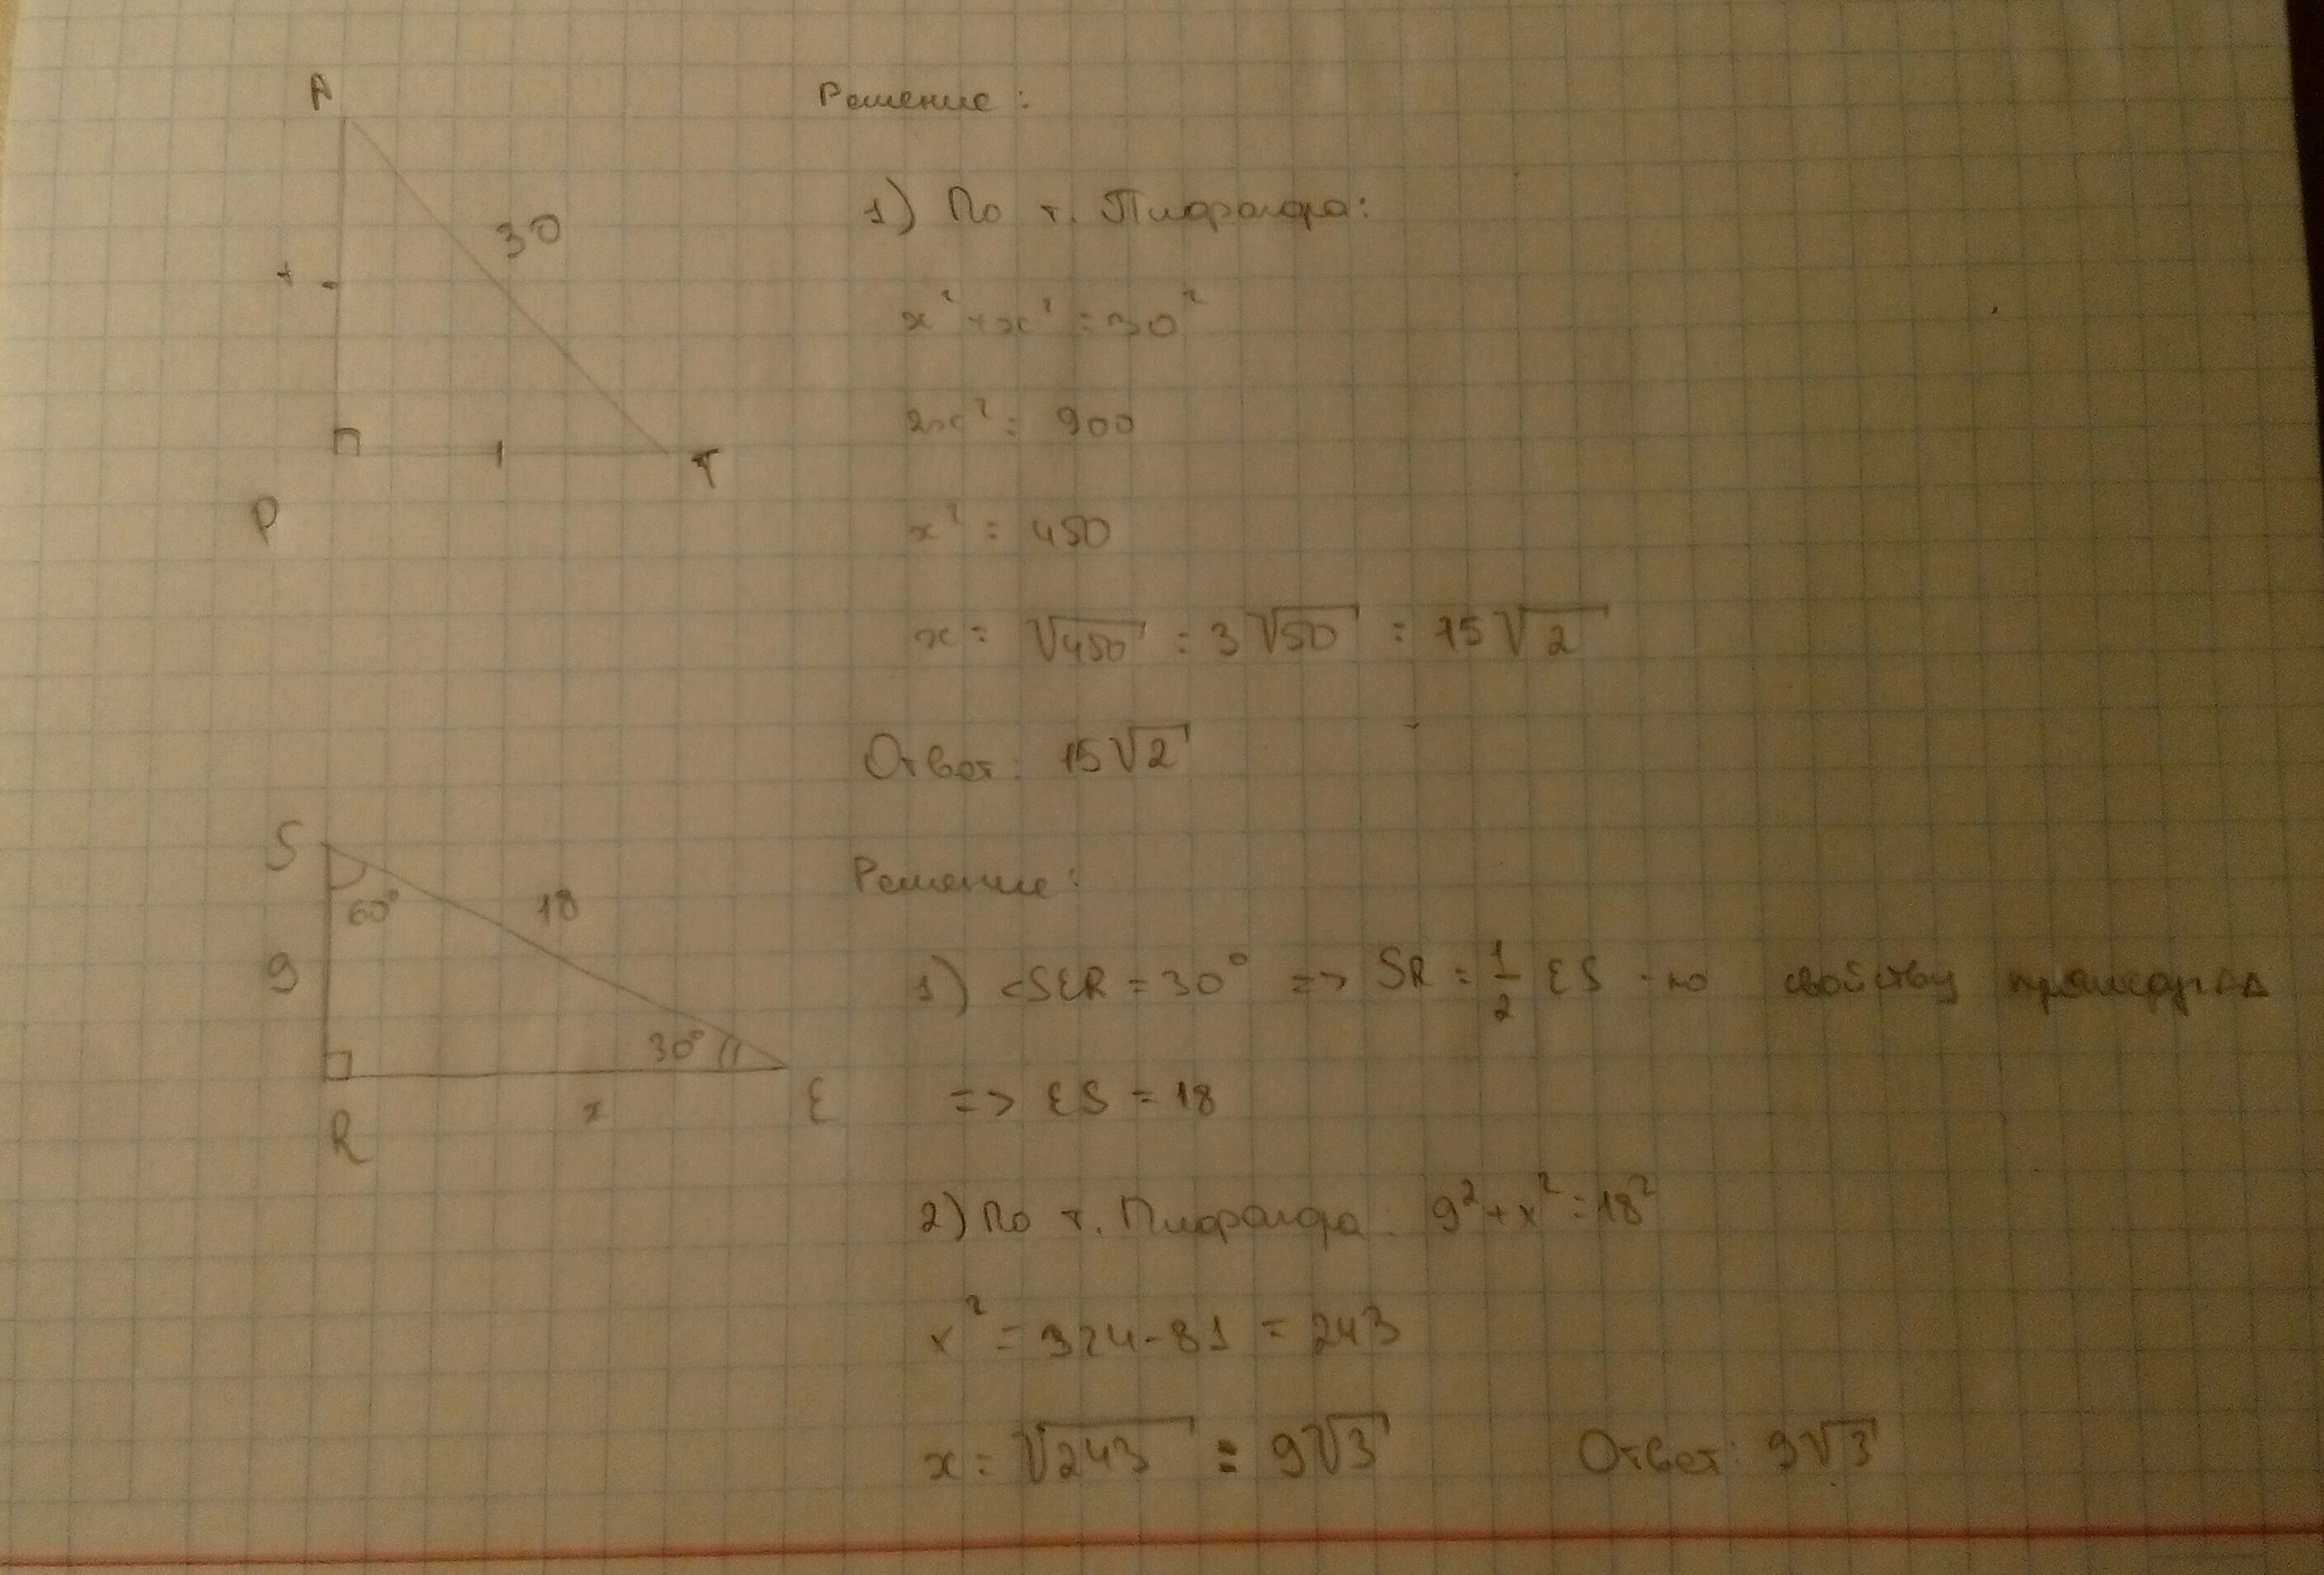 A
Решение:
30
1) По т. Пифагора:
x² + x² = 30²
T
2x² = 900
P
x² = 450
x = √450 = 3√50 = 15√2
Ответ: 15√2
S
60°
18
Решение:
9
1) <SER = 30° => SR = 1/2 ES - по свойству прямоуг Δ
30°
R
x
E
=> ES = 18
2) По т. Пифагора. 9² + x² = 18²
x² = 324 - 81 = 243
x = √243 = 9√3 Ответ: 9√3